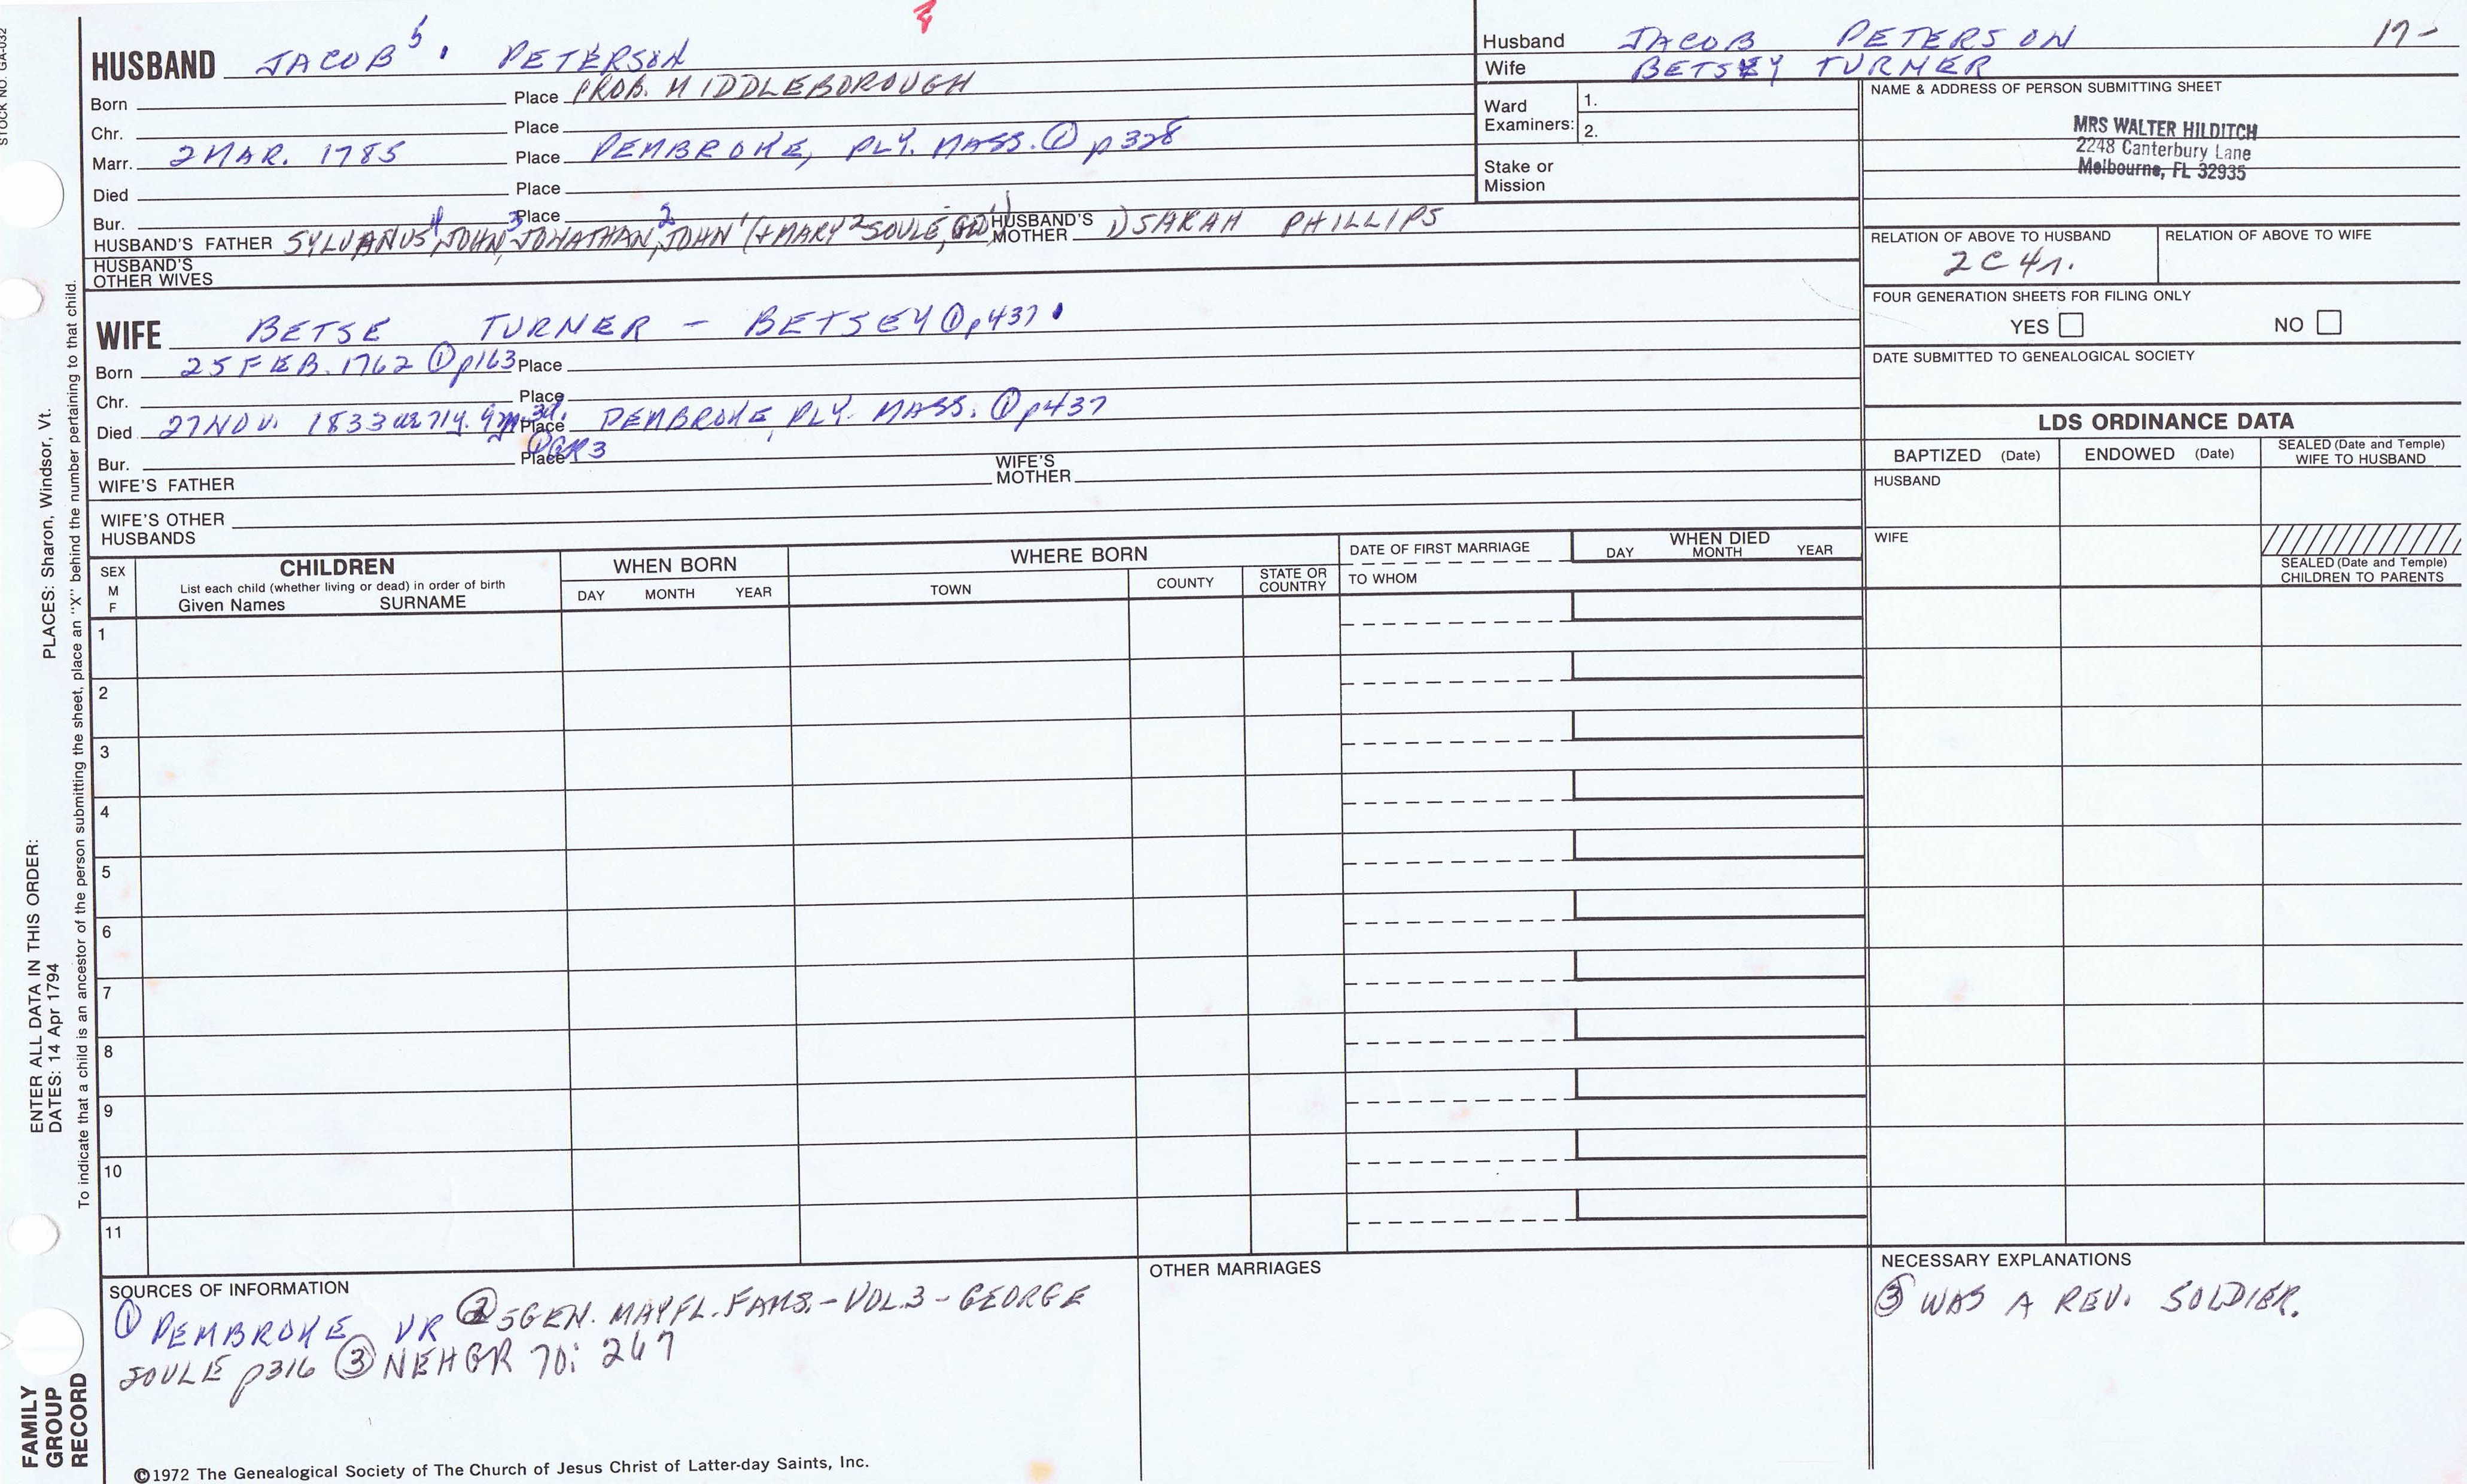 STOCK NO. GA-032
PLACES: Sharon, Windsor, Vt.
ENTER ALL DATA IN THIS ORDER:
DATES: 14 Apr 1794
To indicate that a child is an ancestor of the person submitting the sheet, place an "X" behind the number pertaining to that child.
FAMILY GROUP RECORD
HUSBAND JACOB 5. PETERSON
Born Place PROB. MIDDLEBOROUGH
Chr. Place
Marr. 2 MAR. 1785 Place PEMBROKE, PLY. MASS. ① p328
Died Place
Bur. Place
HUSBAND'S FATHER SYLVANUS 4, JOHN 3, JONATHAN 2, JOHN 1 (+ MARY 2 SOULE, HUSBAND'S MOTHER 1) SARAH PHILLIPS
HUSBAND'S OTHER WIVES
WIFE BETSE TURNER - BETSEY ① p437.
Born 25 FEB. 1762 ① p163 Place
Chr. Place
Died 27 NOV. 1833 ae 71y. 9m 3d. Place PEMBROKE, PLY. MASS. ① p437
① GR3
Bur. Place
WIFE'S FATHER WIFE'S MOTHER
WIFE'S OTHER HUSBANDS
Husband JACOB PETERSON 17-
Wife BETSEY TURNER
Ward Examiners: 1. 2.
Stake or Mission
NAME & ADDRESS OF PERSON SUBMITTING SHEET
MRS WALTER HILDITCH
2248 Canterbury Lane
Melbourne, FL 32935
RELATION OF ABOVE TO HUSBAND RELATION OF ABOVE TO WIFE
2C 4r.
FOUR GENERATION SHEETS FOR FILING ONLY
YES NO
DATE SUBMITTED TO GENEALOGICAL SOCIETY
LDS ORDINANCE DATA
BAPTIZED (Date) ENDOWED (Date) SEALED (Date and Temple) WIFE TO HUSBAND
HUSBAND
WIFE
SEALED (Date and Temple) CHILDREN TO PARENTS
SEX M F
CHILDREN
List each child (whether living or dead) in order of birth
Given Names SURNAME
WHEN BORN
DAY MONTH YEAR
WHERE BORN
TOWN COUNTY STATE OR COUNTRY
DATE OF FIRST MARRIAGE
TO WHOM
WHEN DIED
DAY MONTH YEAR
1
2
3
4
5
6
7
8
9
10
11
SOURCES OF INFORMATION
① PEMBROKE VR ② 5GEN. MAYFL. FAMS. - VOL.3 - GEORGE
SOULE p316 ③ NEHGR 70: 267
OTHER MARRIAGES
NECESSARY EXPLANATIONS
③ WAS A REV. SOLDIER.
©1972 The Genealogical Society of The Church of Jesus Christ of Latter-day Saints, Inc.